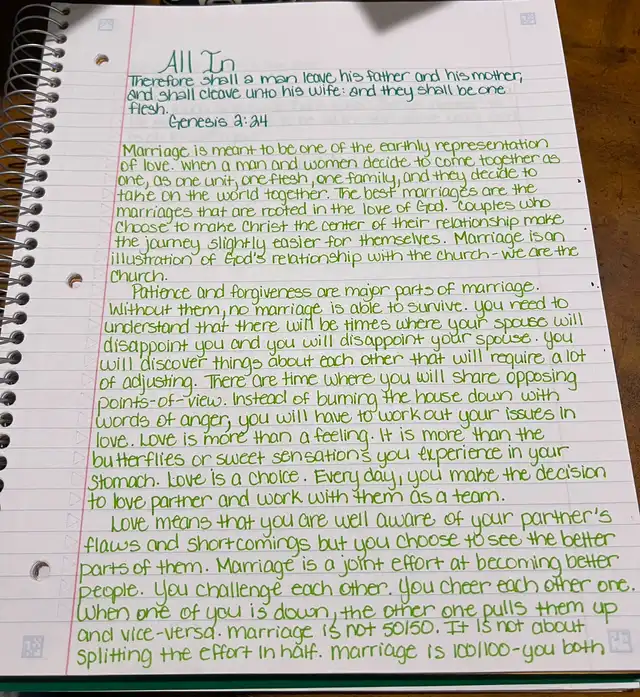 All In
Therefore shall a man leave his father and his mother,
and shall cleave unto his wife: and they shall be one
flesh.
Genesis 2:24
Marriage is meant to be one of the earthly representation
of love. When a man and women decide to come together as
one, as one unit, one flesh, one family, and they decide to
take on the world together. The best marriages are the
marriages that are rooted in the love of God. Couples who
choose to make Christ the center of their relationship make
the journey slightly easier for themselves. Marriage is an
illustration of God's relationship with the church-we are the
church.
Patience and forgiveness are major parts of marriage.
Without them, no marriage is able to survive. You need to
understand that there will be times where your spouse will
disappoint you and you will disappoint your spouse. You
will discover things about each other that will require a lot
of adjusting. There are time where you will share opposing
points-of-view. Instead of burning the house down with
words of anger, you will have to work out your issues in
love. Love is more than a feeling. It is more than the
butterflies or sweet sensations you experience in your
stomach. Love is a choice. Every day, you make the decision
to love partner and work with them as a team.
Love means that you are well aware of your partner's
flaws and shortcomings but you choose to see the better
parts of them. Marriage is a joint effort at becoming better
people. You challenge each other. You cheer each other one.
When one of you is down, the other one pulls them up
and vice-versa. marriage is not 50/50. It is not about
splitting the effort in half. marriage is 100/100-you both